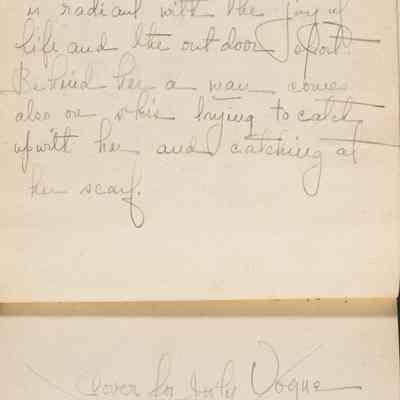 is radiant with the joy of
life and the outdoor sport
Behind her a man comes
also on skis trying to catch
up with her and catching at
her scarf.
Cover for July Vogue